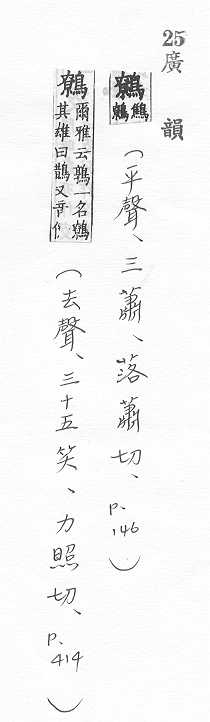 25廣韻
鷯鷦鷯（平聲、三蕭、落蕭切、p.146）
鷯爾雅云鶉一名鷯其雄曰鶛又音（去聲、三十五笑、力照切、p.414）